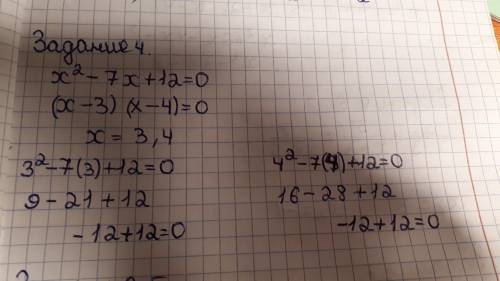 Задание 4.
x² - 7x + 12 = 0
(x - 3) (x - 4) = 0
x = 3, 4
3² - 7(3) + 12 = 0
9 - 21 + 12
- 12 + 12 = 0
4² - 7(4) + 12 = 0
16 - 28 + 12
- 12 + 12 = 0